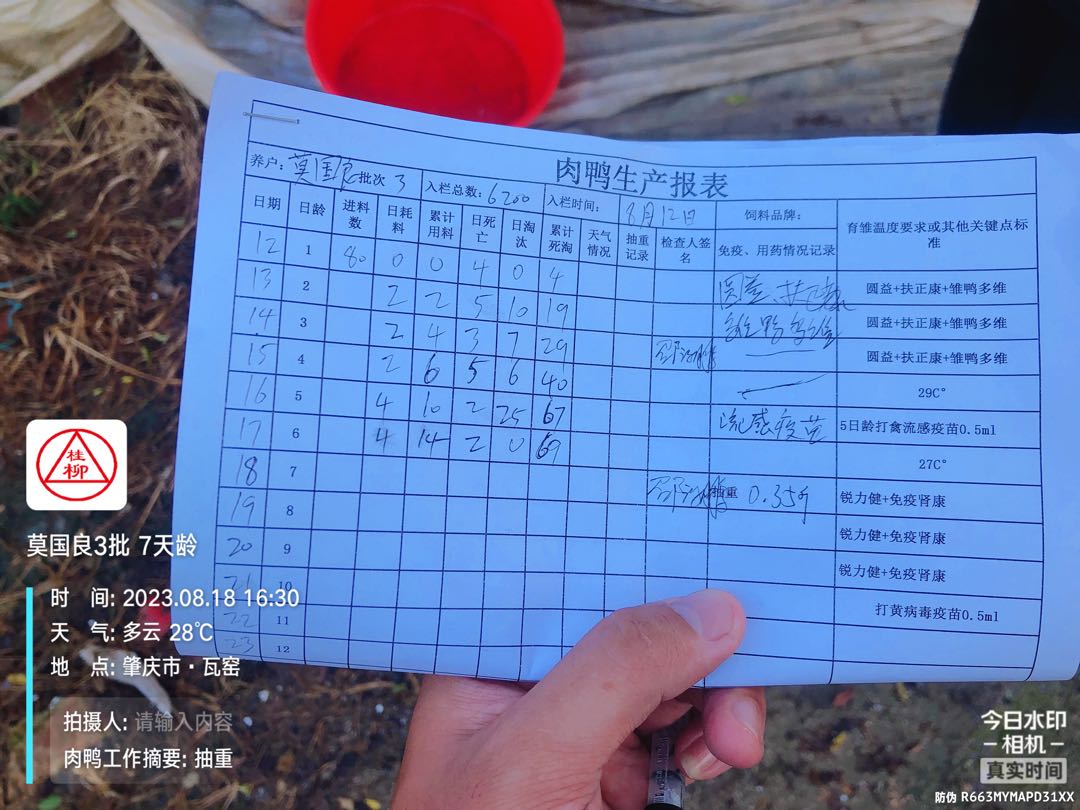 肉鸭生产报表
养户: 莫国良 批次 3 入栏总数: 6200 入栏时间: 8月12日 饲料品牌: 育雏温度要求或其他关键点标准
日期 日龄 进料数 日耗料 累计用料 日死亡 日淘汰 累计死淘 天气情况 抽重记录 检查人签名 免疫、用药情况记录
12 1 80 0 0 4 0 4
13 2 2 2 5 10 19 圆益、扶正康 圆益+扶正康+雏鸭多维
14 3 2 4 3 7 29 雏鸭多维 圆益+扶正康+雏鸭多维
15 4 2 6 5 6 40 圆益+扶正康+雏鸭多维
16 5 4 10 2 25 67 29C°
17 6 4 14 2 0 69 流感疫苗 5日龄打禽流感疫苗0.5ml
18 7 27C°
19 8 抽重 0.35斤 锐力健+免疫肾康
20 9 锐力健+免疫肾康
21 10 锐力健+免疫肾康
22 11 打黄病毒疫苗0.5ml
23 12
桂柳
莫国良3批 7天龄
时 间: 2023.08.18 16:30
天 气: 多云 28℃
地 点: 肇庆市·瓦窑
拍摄人: 请输入内容
肉鸭工作摘要: 抽重
今日水印
-相机-
真实时间
防伪 R663MYMAPD31XX